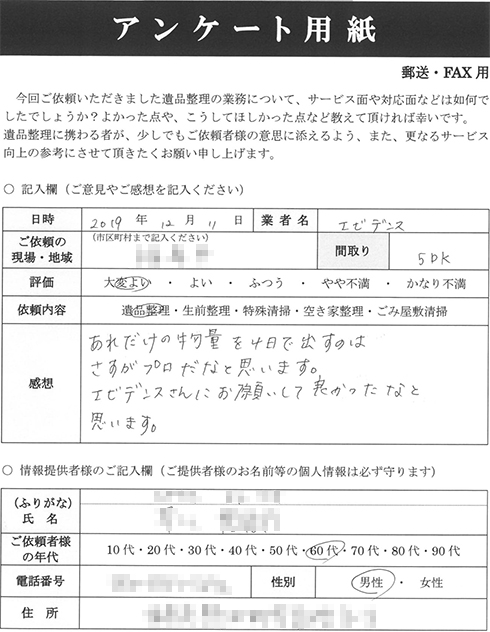 アンケート用紙
郵送・FAX用
今回ご依頼いただきました遺品整理の業務について、サービス面や対応面などは如何で
したでしょうか？よかった点や、こうしてほしかった点など教えて頂ければ幸いです。
遺品整理に携わる者が、少しでもご依頼者様の意思に添えるよう、また、更なるサービス
向上の参考にさせて頂きたくお願い申し上げます。
○ 記入欄（ご意見やご感想を記入ください）
日時 2019 年 12 月 11 日 業者名 エビデンス
ご依頼の現場・地域 （市区町村まで記入ください） 間取り 5DK
評価 大変よい ・ よい ・ ふつう ・ やや不満 ・ かなり不満
依頼内容 遺品整理・生前整理・特殊清掃・空き家整理・ごみ屋敷清掃
感想
あれだけの物量を4日で出すのは
さすがプロだなと思います。
エビデンスさんにお願いして良かったなと
思います。
○ 情報提供者様のご記入欄（ご提供者様のお名前等の個人情報は必ず守ります）
（ふりがな）
氏 名
ご依頼者様の年代 10代・20代・30代・40代・50代・60代・70代・80代・90代
電話番号 性別 男性 ・ 女性
住 所